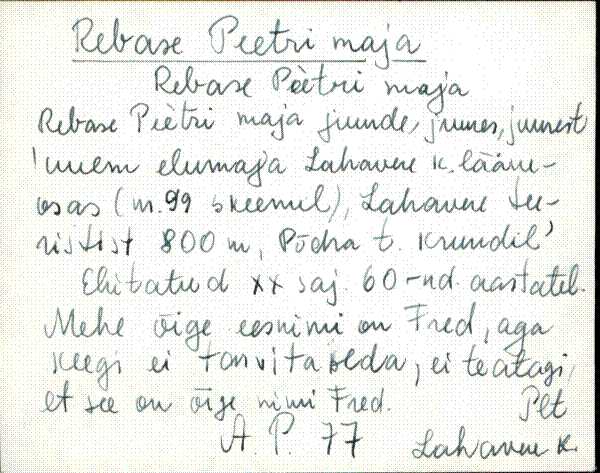 Rebase Peetri maja
Rebase Peètri maja
Rebase Peètri maja juunde, juunes, juunest
'uuem elumaja Lahavere k. lääne-
osas (m. 99 skeemil), Lahavere tee-
ristist 800 m, Põdra t. krundil'
Ehitatud XX saj. 60-nd. aastatel.
Mehe õige eesnimi on Fred, aga
keegi ei tarvita seda, ei teatagi,
et see on õige nimi Fred.
Plt
A. P. 77
Lahavere k.